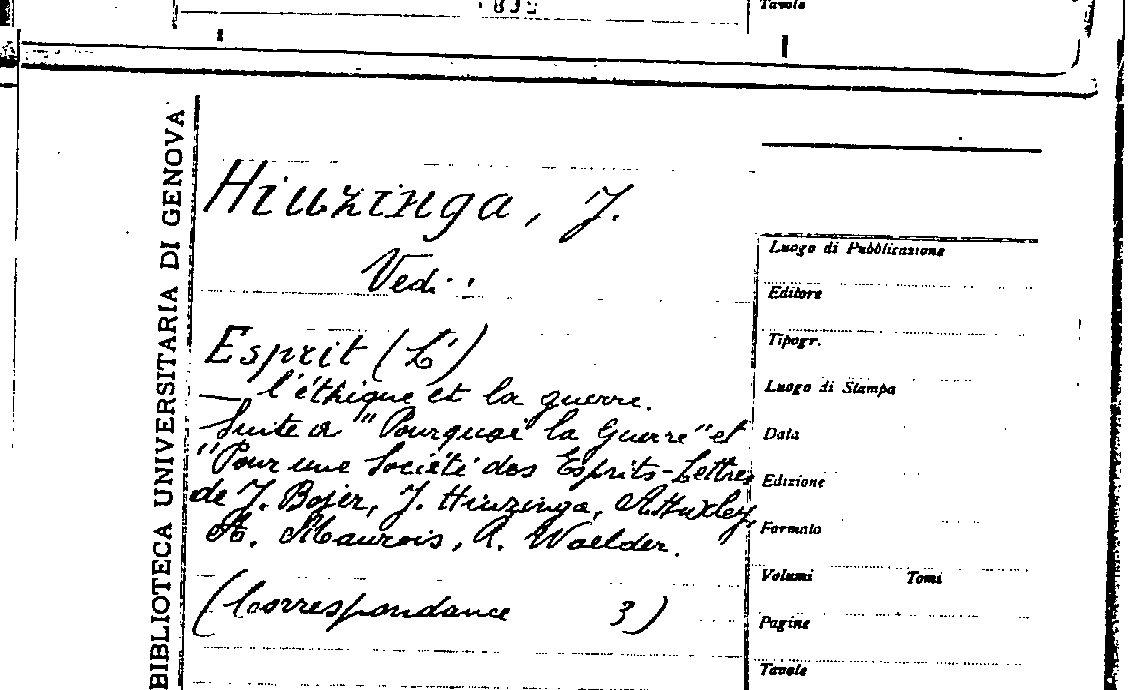 Tavole
BIBLIOTECA UNIVERSITARIA DI GENOVA
Hiuzinga, J.
Vedi:
Esprit (L')
— l'éthique et la guerre.
Suite a "Pourquoi la Guerre" et
"Pour une Société des Esprits-Lettres
de J. Bojer, J. Hiuzinga, A. Huxley,
A. Maurois, R. Waelder.
(Correspondance 3)
Luogo di Pubblicazione
Editore
Tipogr.
Luogo di Stampa
Data
Edizione
Formato
Volumi Tomi
Pagine
Tavole